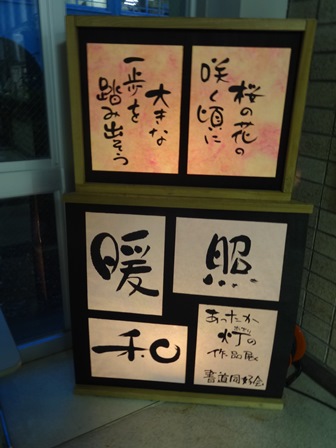 桜の花の
咲く頃に
大きな
一歩を
踏み出そう
暖
照
和
あったか
灯の
作品展
書道同好会